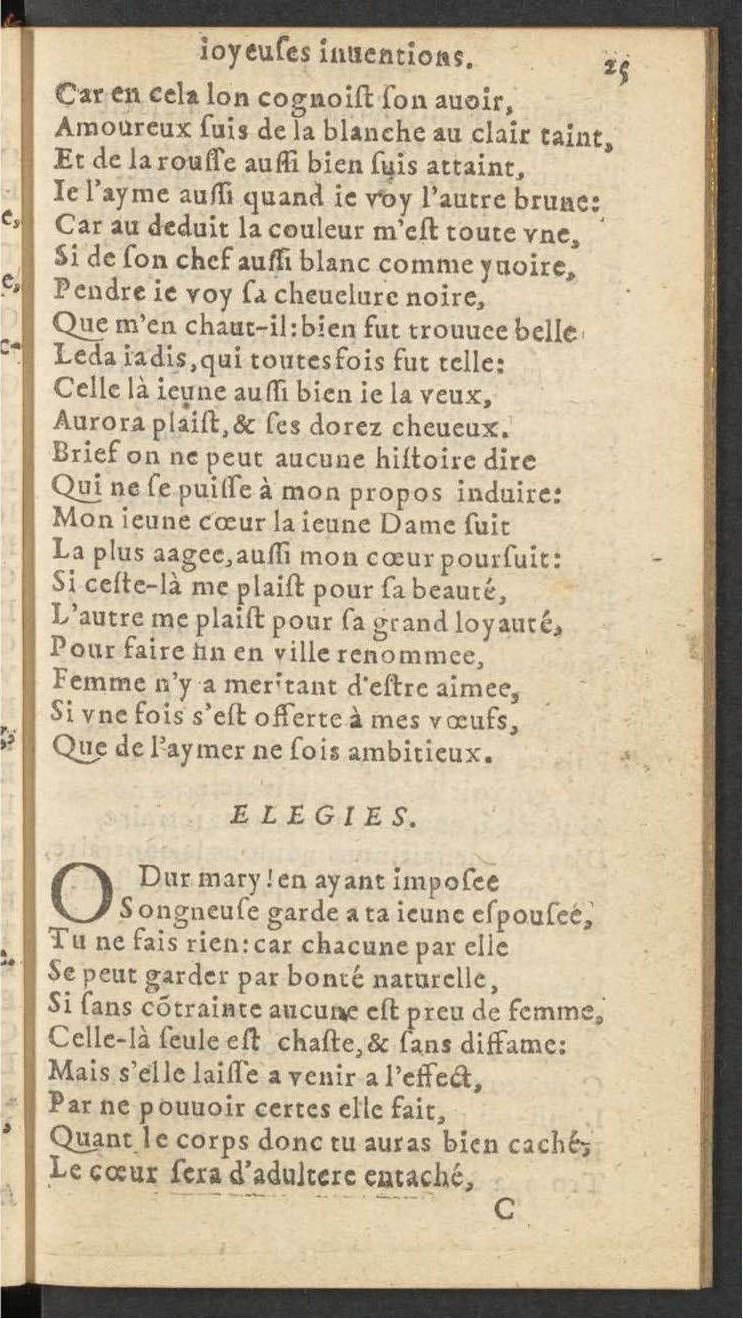 ioyeuſes inuentions.
25
Car en cela lon cognoiſt ſon auoir,
Amoureux ſuis de la blanche au clair taint,
Et de la rouſſe auſſi bien ſuis attaint,
Ie l'ayme auſſi quand ie voy l'autre brune:
Car au deduit la couleur m'eſt toute vne,
Si de ſon chef auſſi blanc comme yuoire,
Pendre ie voy ſa cheuelure noire,
Que m'en chaut-il: bien fut trouuee belle
Leda iadis, qui toutesfois fut telle:
Celle là ieune auſſi bien ie la veux,
Aurora plaiſt, & ſes dorez cheueux.
Brief on ne peut aucune hiſtoire dire
Qui ne ſe puiſſe à mon propos induire:
Mon ieune cœur la ieune Dame ſuit
La plus aagee, auſſi mon cœur pourſuit:
Si ceſte-là me plaiſt pour ſa beauté,
L'autre me plaiſt pour ſa grand loyauté,
Pour faire fin en ville renommee,
Femme n'y a meritant d'eſtre aimee,
Si vne fois s'eſt offerte à mes vœufs,
Que de l'aymer ne ſois ambitieux.
ELEGIES.
O Dur mary! en ayant impoſee
Songneuſe garde a ta ieune eſpouſeé,
Tu ne fais rien: car chacune par elle
Se peut garder par bonté naturelle,
Si ſans cõtrainte aucune eſt preu de femme,
Celle-là ſeule eſt chaſte, & ſans diffame:
Mais s'elle laiſſe a venir a l'effect,
Par ne pouuoir certes elle fait,
Quant le corps donc tu auras bien caché,
Le cœur ſera d'adultere entaché,
C